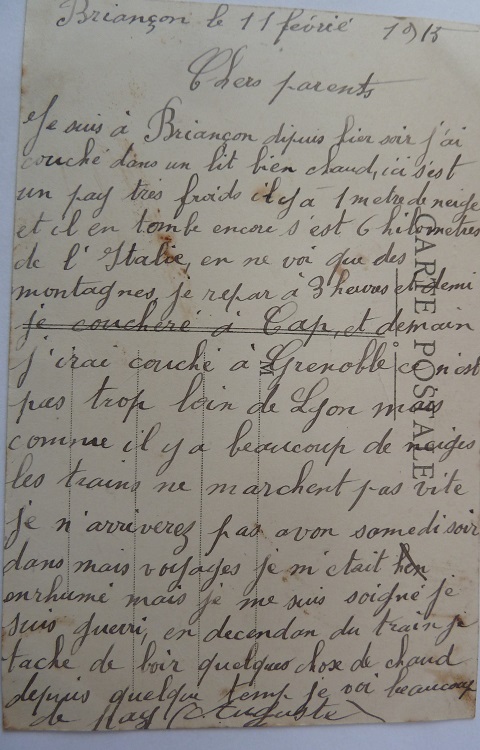 Briançon le 11 févrié 1915
Chers parents
Je suis à Briançon dipuis hier soir j'ai
couché dans un lit bien chaud, ici s'est
un pay très froids il y a 1 metre de neige
et il en tombe encore s'est 6 kilometres
de l'Italie, en ne voi que des
montagnes, je repar à 3 heures et demi
je coucheré à Gap, et demain
j'irai couché à Grenoble ce n'est
pas trop loin de Lyon mais
comme il y a beaucoup de neiges
les trains ne marchent pas vite
je n'arriverez pas avon samedi soir
dans mais voyages je m'etait bien
enrhumé mais je me suis soigné je
suis guerri, en decendan du train je
tache de boir quelques chose de chaud
depuis quelque temp je voi beaucoup
de pays Auguste
CARTE POSTALE
M